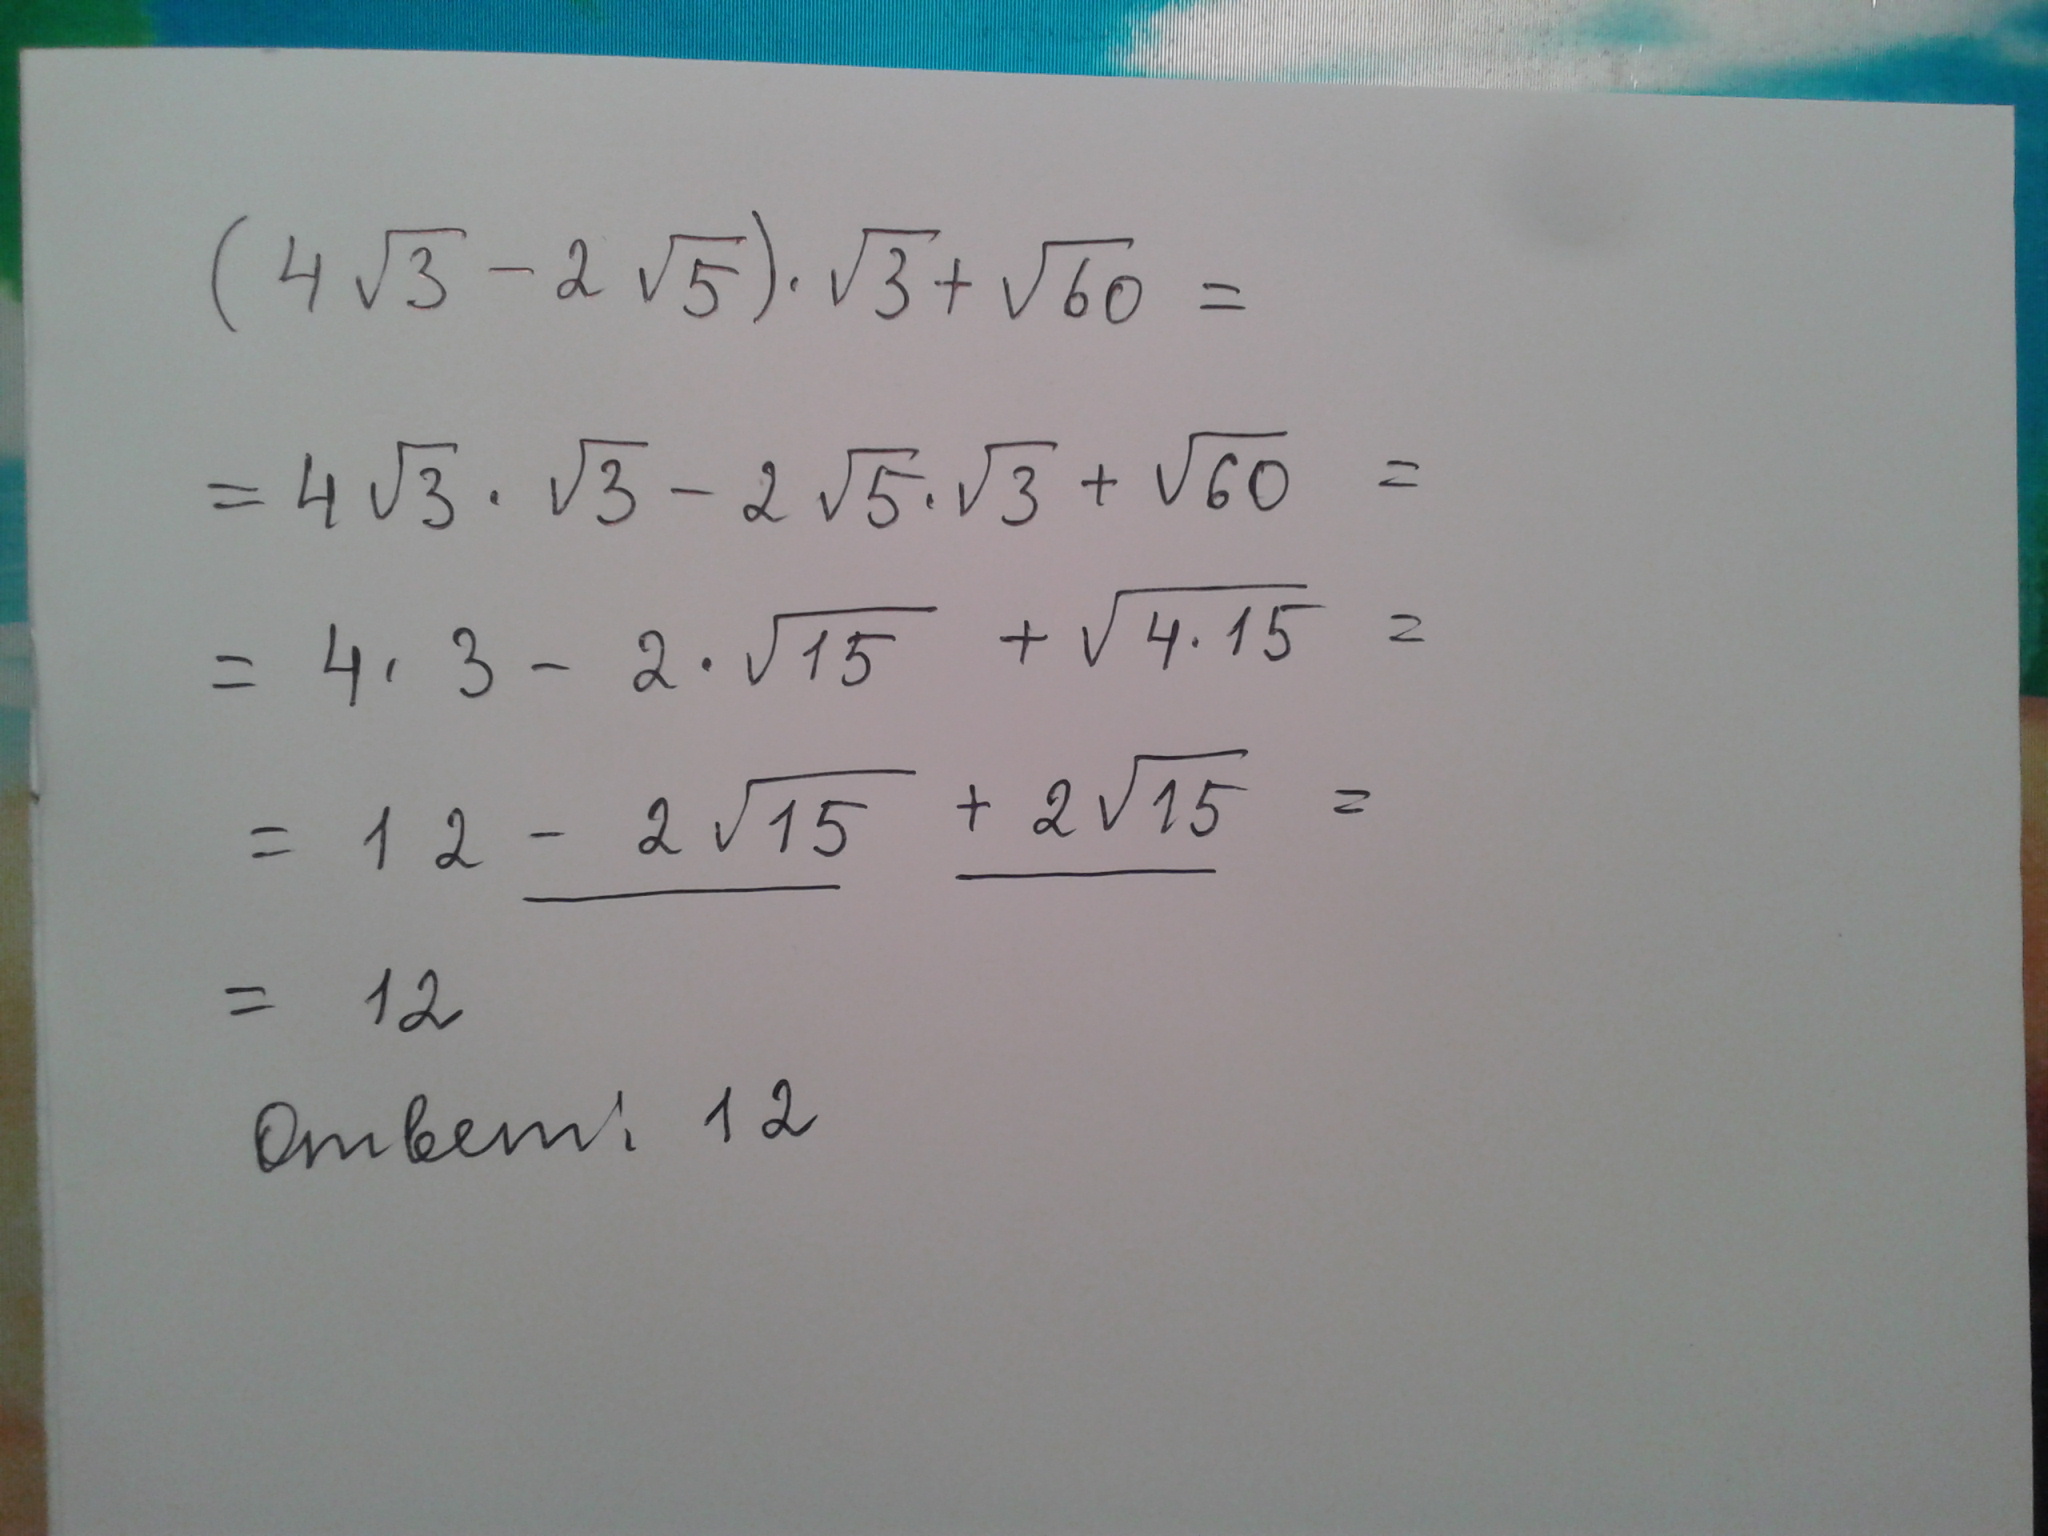 (4√3 - 2√5)·√3 + √60 =
= 4√3 · √3 - 2√5·√3 + √60 =
= 4 · 3 - 2·√15 + √4·15 =
= 12 - 2√15 + 2√15 =
= 12
Ответ: 12